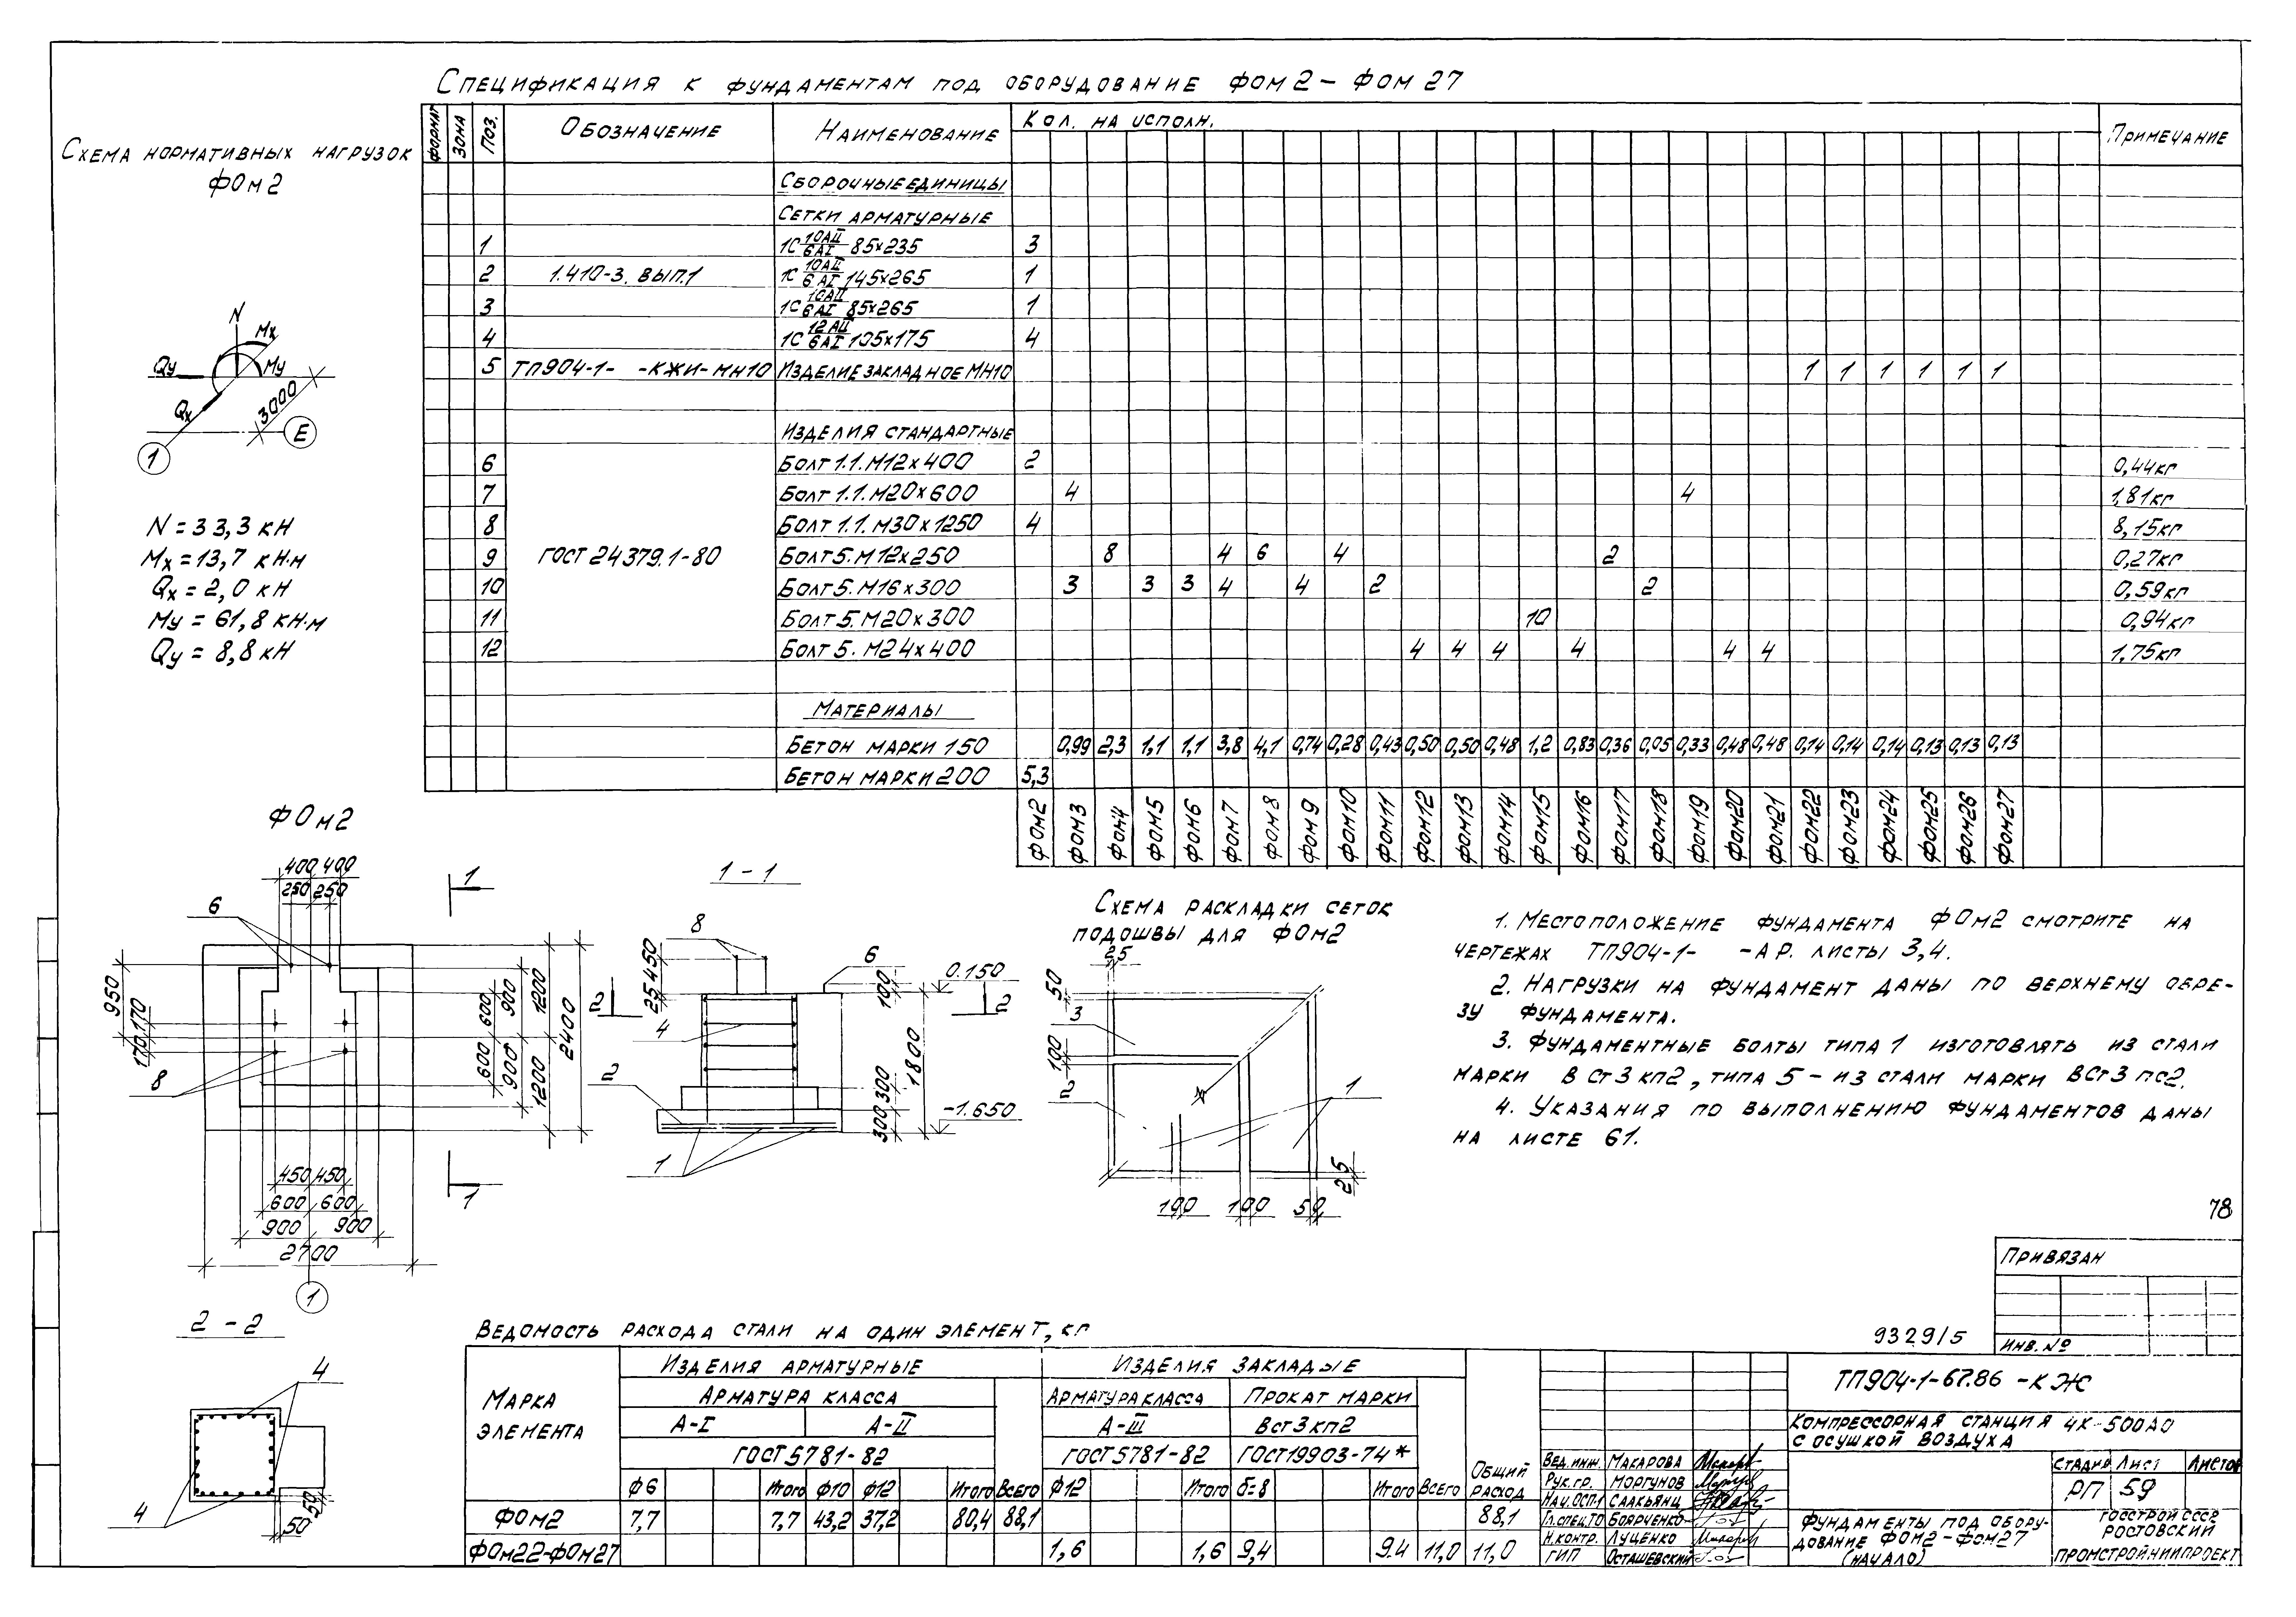 Спецификация к фундаментам под оборудование ФОм2 – ФОм27
Схема нормативных нагрузок
ФОм2
N
Mx
Qy
My
Qx
3000
Е
1
N = 33,3 кН
Mx = 13,7 кН·м
Qx = 2,0 кН
My = 61,8 кН·м
Qy = 8,8 кН
Формат Зона Поз. Обозначение Наименование Кол. на исполн. Примечание
Сборочные единицы
Сетки арматурные
1 1С 10АII/6АI 85х235 3
2 1.410-3. вып.1 1С 10АII/6АI 145х265 1
3 1С 10АII/6АI 85х265 1
4 1С 12АII/6АI 105х175 4
5 ТП904-1- -КЖИ-МН10 Изделие закладное МН10 1 1 1 1 1 1
Изделия стандартные
6 Болт 1.1. М12х400 2 0,44кг
7 Болт 1.1. М20х600 4 4 1,81кг
8 Болт 1.1. М30х1250 4 8,15кг
9 ГОСТ 24379.1-80 Болт 5. М12х250 8 4 6 4 2 0,27кг
10 Болт 5. М16х300 3 3 3 4 4 2 2 0,59кг
11 Болт 5. М20х300 10 0,94кг
12 Болт 5. М24х400 4 4 4 4 4 4 1,75кг
Материалы
Бетон марки 150 0,99 2,3 1,1 1,1 3,8 4,1 0,74 0,28 0,43 0,50 0,50 0,48 1,2 0,83 0,36 0,05 0,33 0,48 0,48 0,14 0,14 0,14 0,13 0,13 0,13
Бетон марки 200 5,3
ФОм2 ФОм3 ФОм4 ФОм5 ФОм6 ФОм7 ФОм8 ФОм9 ФОм10 ФОм11 ФОм12 ФОм13 ФОм14 ФОм15 ФОм16 ФОм17 ФОм18 ФОм19 ФОм20 ФОм21 ФОм22 ФОм23 ФОм24 ФОм25 ФОм26 ФОм27
ФОм2
400 400
250 250
1
6
950
170 170
8
600 600
900 900
1200 1200
2400
450 450
600 600
900 900
2700
1
1
1 – 1
8
6
450
25
100
0.150
2
2
4
2
1800
300 300
-1.650
1
Схема раскладки сеток
подошвы для ФОм2
25
50
3
100
2
1
25
100 100 50
1. Местоположение фундамента ФОм2 смотрите на
чертежах ТП904-1- -АР. листы 3,4.
2. Нагрузки на фундамент даны по верхнему обре-
зу фундамента.
3. Фундаментные болты типа 1 изготовлять из стали
марки ВСт3кп2, типа 5 – из стали марки ВСт3пс2.
4. Указания по выполнению фундаментов даны
на листе 61.
78
2 – 2
4
4
50
50
Ведомость расхода стали на один элемент, кг
Марка элемента Изделия арматурные Изделия закладые Общий расход
Арматура класса Всего Арматура класса Прокат марки Всего
А-I А-II А-III ВСт3кп2
ГОСТ 5781-82 ГОСТ 5781-82 ГОСТ19903-74*
Ф6 Итого Ф10 Ф12 Итого Всего Ф12 Итого б=8 Итого Всего
ФОм2 7,7 7,7 43,2 37,2 80,4 88,1 88,1
ФОм22-ФОм27 1,6 1,6 9,4 9.4 11,0 11,0
Привязан
Инв. №
9329/5
ТП904-1-67.86 -КЖ
Компрессорная станция 4К-500АО
с осушкой воздуха
Вед. инж. Макарова
Рук. гр. Моргунов
Нач. ОСП-1 Саакьянц
Гл. спец. ТО Боярченко
Н. контр. Луценко
ГИП Осташевский
Стадия Лист Листов
РП 59
Фундаменты под обору-
дование ФОм2-ФОм27
(начало)
Госстрой СССР
Ростовский
Промстройниипроект